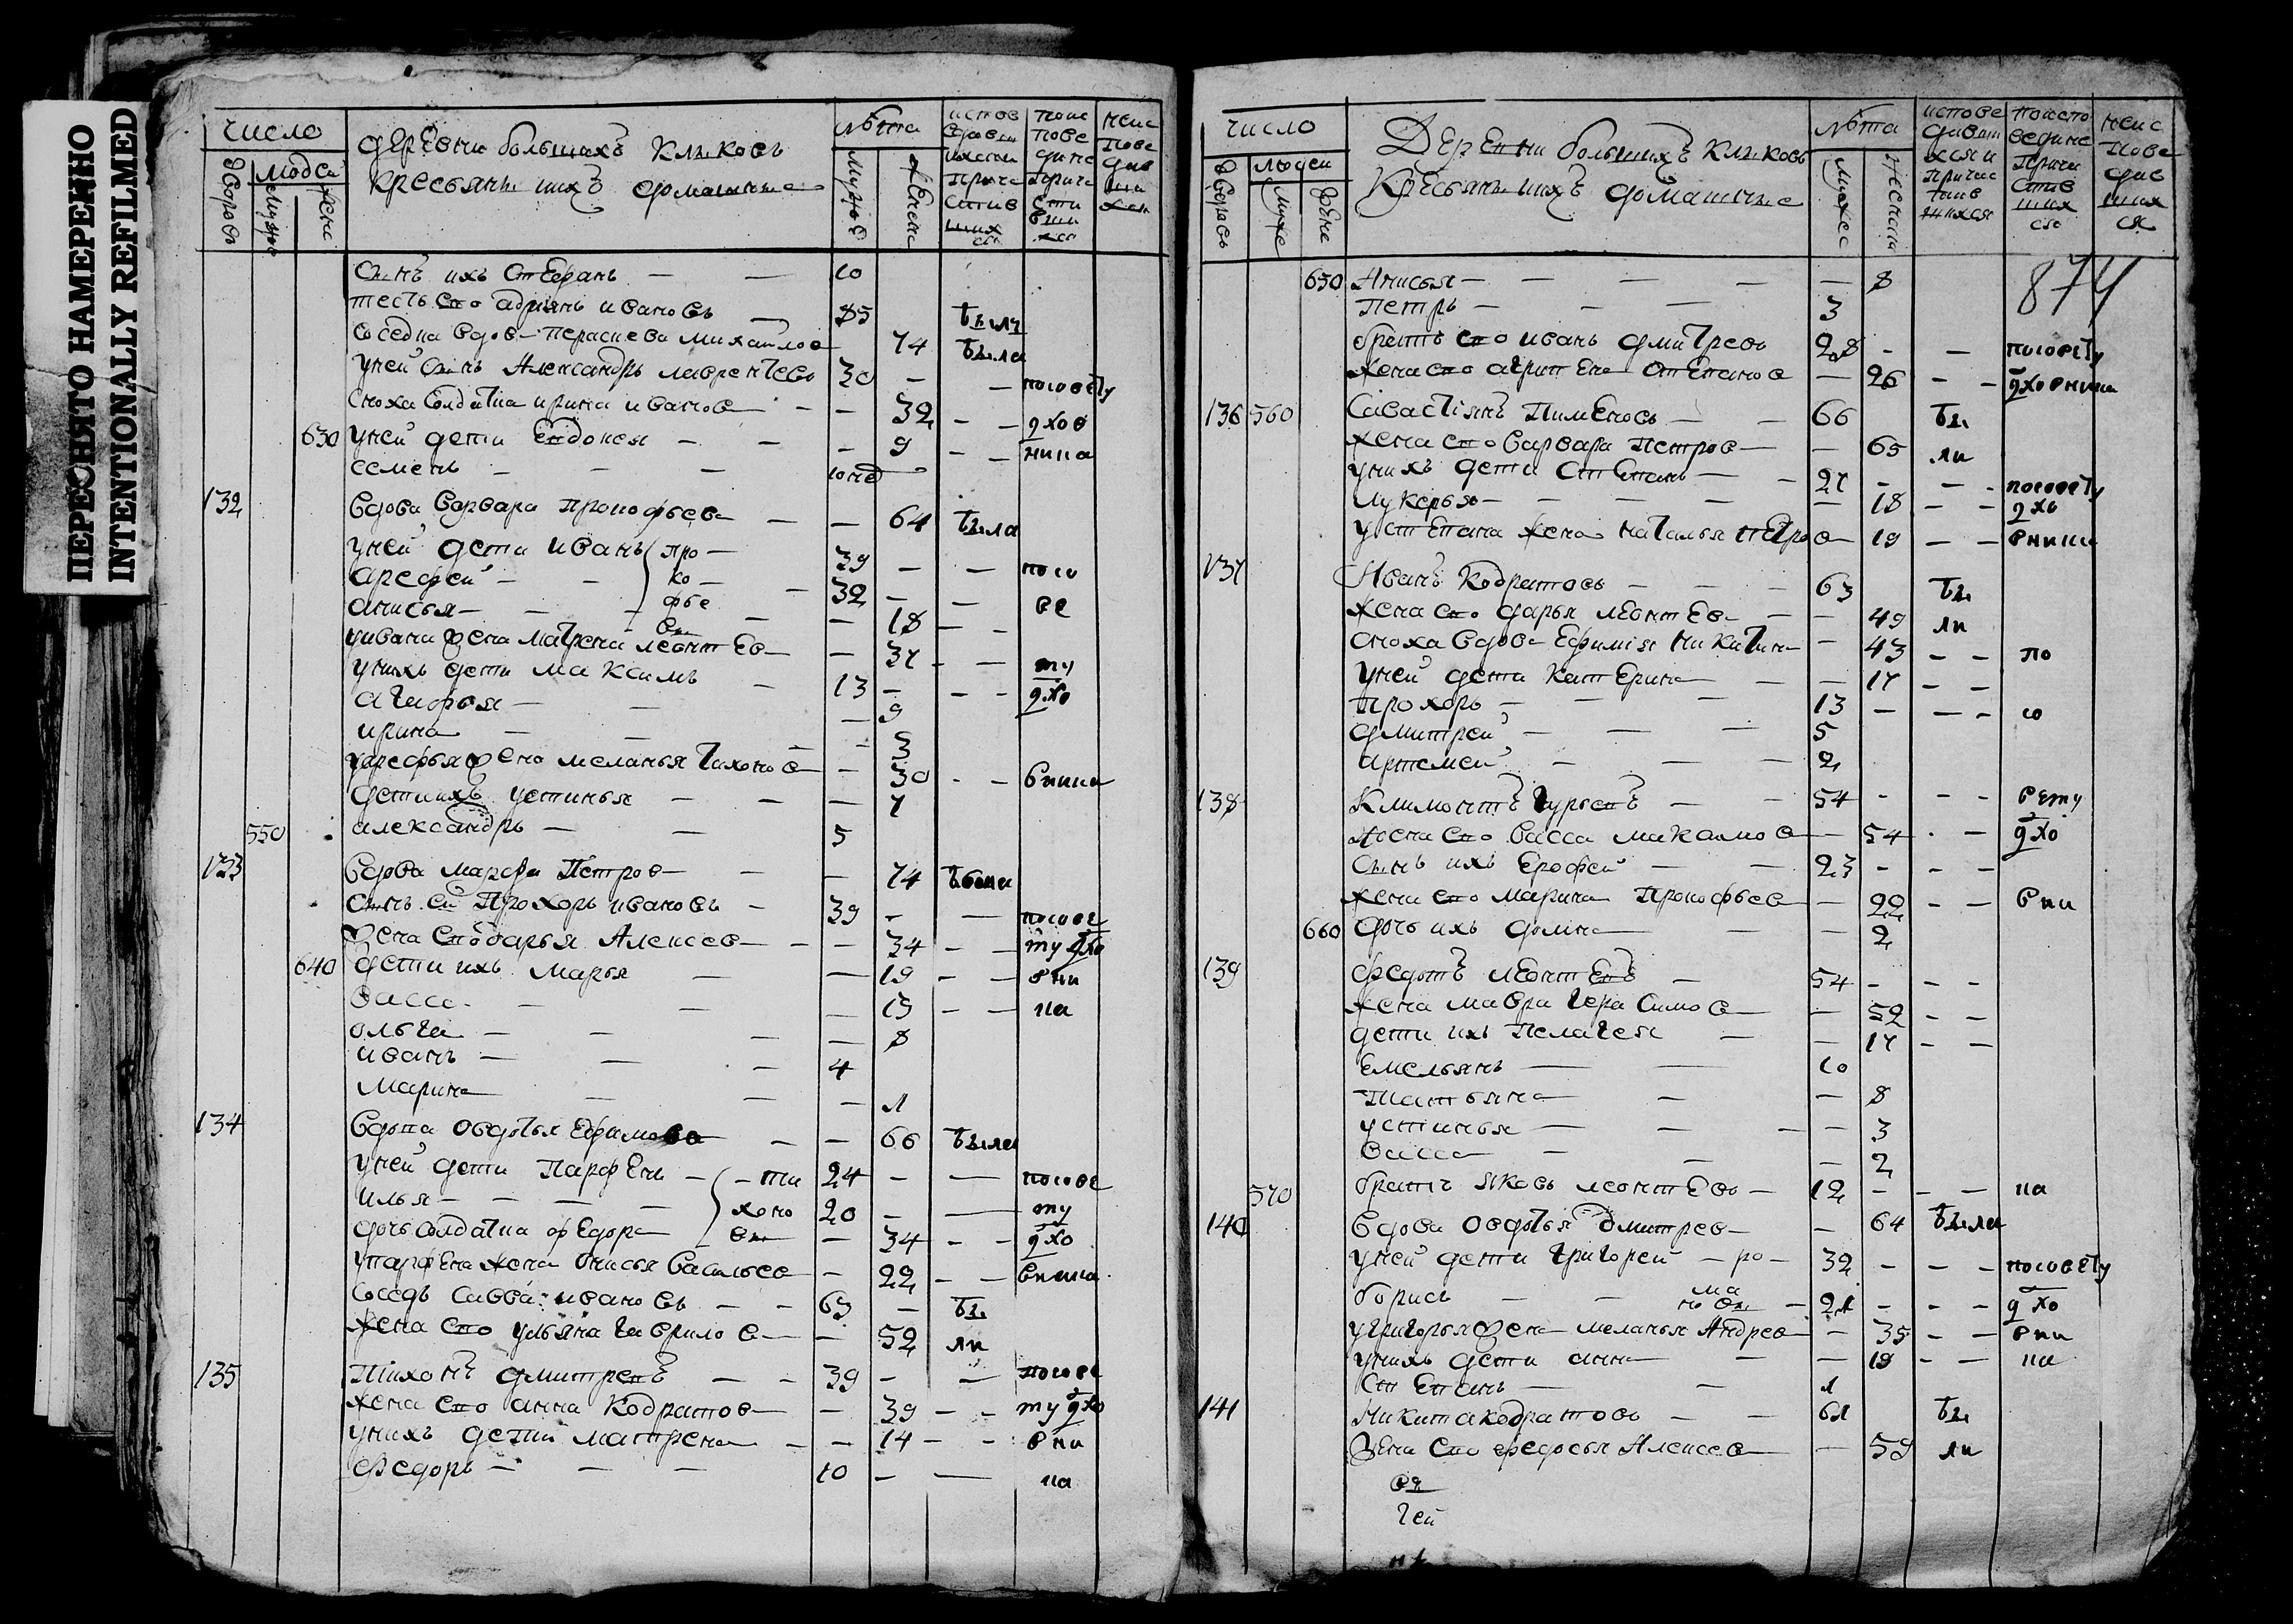 ПЕРЕСНЯТО НАМЕРЕННО
INTENTIONALLY REFILMED
число
дворовъ
людеи
мужес
жене
деревни большихъ клыковъ
кресьяны ихъ домашные
лѣта
мужес
женски
испов
едавш
ихся и
приче
стив
шихся
поис
пове
дине
приче
сти
вши
хся
неис
пове
див
ши
хся
сынъ ихъ стефанъ — — 10
тесть ево адриянъ ивановъ — 85 были
соседка вдова перасковя михаилова 74 была
унеи сынъ Александръ лаврентевъ 30 — — посовету
сноха солдатка ирина иванова — — 32 — — духов
630 унеи дети Евдокея — — — 9 — — ника
семенъ — — — 10 нед
132 вдова варвара прокофьева — — 64 была
унеи дети иванъ про— 39 — — посо
арефеи — — ко— — 32 — — ве
анисья — — фье вы — — 18 — —
уивана жена матрена леонтева — 37 — — ту
унихъ дети максимъ — 13 — — — духо
агафья — — — 9
ирина — — — — 3
уарефья жена меланья тихонова — 30 — — вника
дети ихъ устинья — — — 7
550 александръ — — 5
133 вдова марфа Петрова — — 74 была
сынъ еи Прохоръ ивановъ — 39 — — посове
жена ево дарья Алексева — — 34 — — ту духо
640 дети ихъ марья — — 19 — — вни
васса — — — 13 — — ка
ольга — — — — 8
иванъ — — — 4
марина — — — 1
134 вдова овдотья Ефимова — — 66 была
унеи дети Парфенъ — ти 24 — — посове
илья — — — хоно 20 — — ту
дочь солдатка федора — вы — 34 — — духо
упарфена жена онисья васильева — 22 — — вника
соседъ савва ивановъ — — 63 — бы
жена ево ульяна гаврилова — 52 ли
135 тихонъ дмитревъ — — 39 — — посове
жена ево анна Кодратова — 39 — — ту духо
унихъ дети матрена — — 14 — — вни
федоръ — — — 10 — — ка
число
дворовъ
людеи
мужес
жене
Деревни большихъ клыковъ
Кресьяны ихъ домашные
лѣта
мужес
женски
испове
дивш
ихся и
причас
тив
шихся
поиспо
ведине
причи
стив
ших
ся
неис
пове
див
ших
ся
874
650 Анисья — — — — — 8
петръ — — — 3
братъ ево иванъ дмитревъ 28 — — посовету
жена ево агрипена степанова — 26 — — духовника
136 560 Савастіянъ Пименовъ — — 66 бы
жена ево варвара петрова — — 65 ли
унихъ дети степанъ — — 27 — — посовету
лукерья — — — — — 18 — — духо
устепана жена наталья петрова — 19 — — вника
137 Иванъ Кодратовъ — — — 63 бы
жена ево дарья леонтева — — 49 ли
сноха вдова Ефимія никитина — 43 — — по
унеи дети катерина — — — 17 — —
прохоръ — — — 13 — — — со
дмитреи — — — 5
артемеи — — — 2
138 Климонтъ гурьевъ — — 54 — — — вету
жена ево васса макимова — 54 — — духо
сынъ ихъ Ерофеи — — 23 — — —
жена ево марина Прокофьева — 22 — — вни
660 дочь ихъ домна — — 2
139 федотъ леонтевъ — 54 — — —
жена мавра герасимова — — 52 — —
дети ихъ Пелагея — — 17 — —
Емельянъ — — 10
татьяна — — — 8
устинья — — — — 3
васса — — — 2
570 братъ яковъ леонтевъ — 12 — — — ка
140 вдова овдотья дмитрева — — 64 была
унеи дети григореи — ро — 32 — — — посовету
борисъ — — ма новы — 21 — — — духо
угригорья жена меланья Андрева — 35 — — вни
унихъ дети анна — — 18 — — ка
степанъ — — 1
141 Никита кодратовъ — — 61 бы
Жена ево федосья Алексева — 59 ли
вя
геи